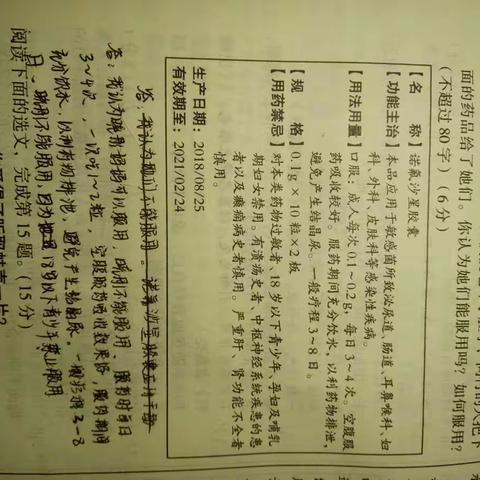 面的药品给了她们。你认为她们能服用吗?如何服用?
(不超过80字)(6分)
【名 称】诺氟沙星胶囊
【功能主治】本品应用于敏感菌所致泌尿道、肠道、耳鼻喉科、妇
科、外科、皮肤科等感染性疾病。
【用法用量】口服:成人每次0.1~0.2g,每日3~4次。空腹服
药吸收较好。服药期间充分饮水,以利药物排泄,
避免产生结晶尿。一般疗程3~8日。
【规 格】0.1g×10粒×2板
【用药禁忌】对本类药物过敏者、18岁以下青少年、孕妇及哺乳
期妇女禁用。有溃疡病史者、中枢神经系统疾患的患
者以及癫痫病史者慎用。严重肝、肾功能不全者
慎用。
生产日期:2018/08/25
有效期至:2021/02/24
答:我认为 不能服用。
答:我认为 妈妈可以服用,晓用不能服用。服药时每日
3~4次,一次吃1~2粒,空腹服药吸收效果好,服药期间
充分饮水,以利药物排泄,避免产生结晶尿。一般疗程3-8
日。 不能服用,因为她 18岁以下青少年禁止服用
阅读下面的选文,完成第15题。(15分)